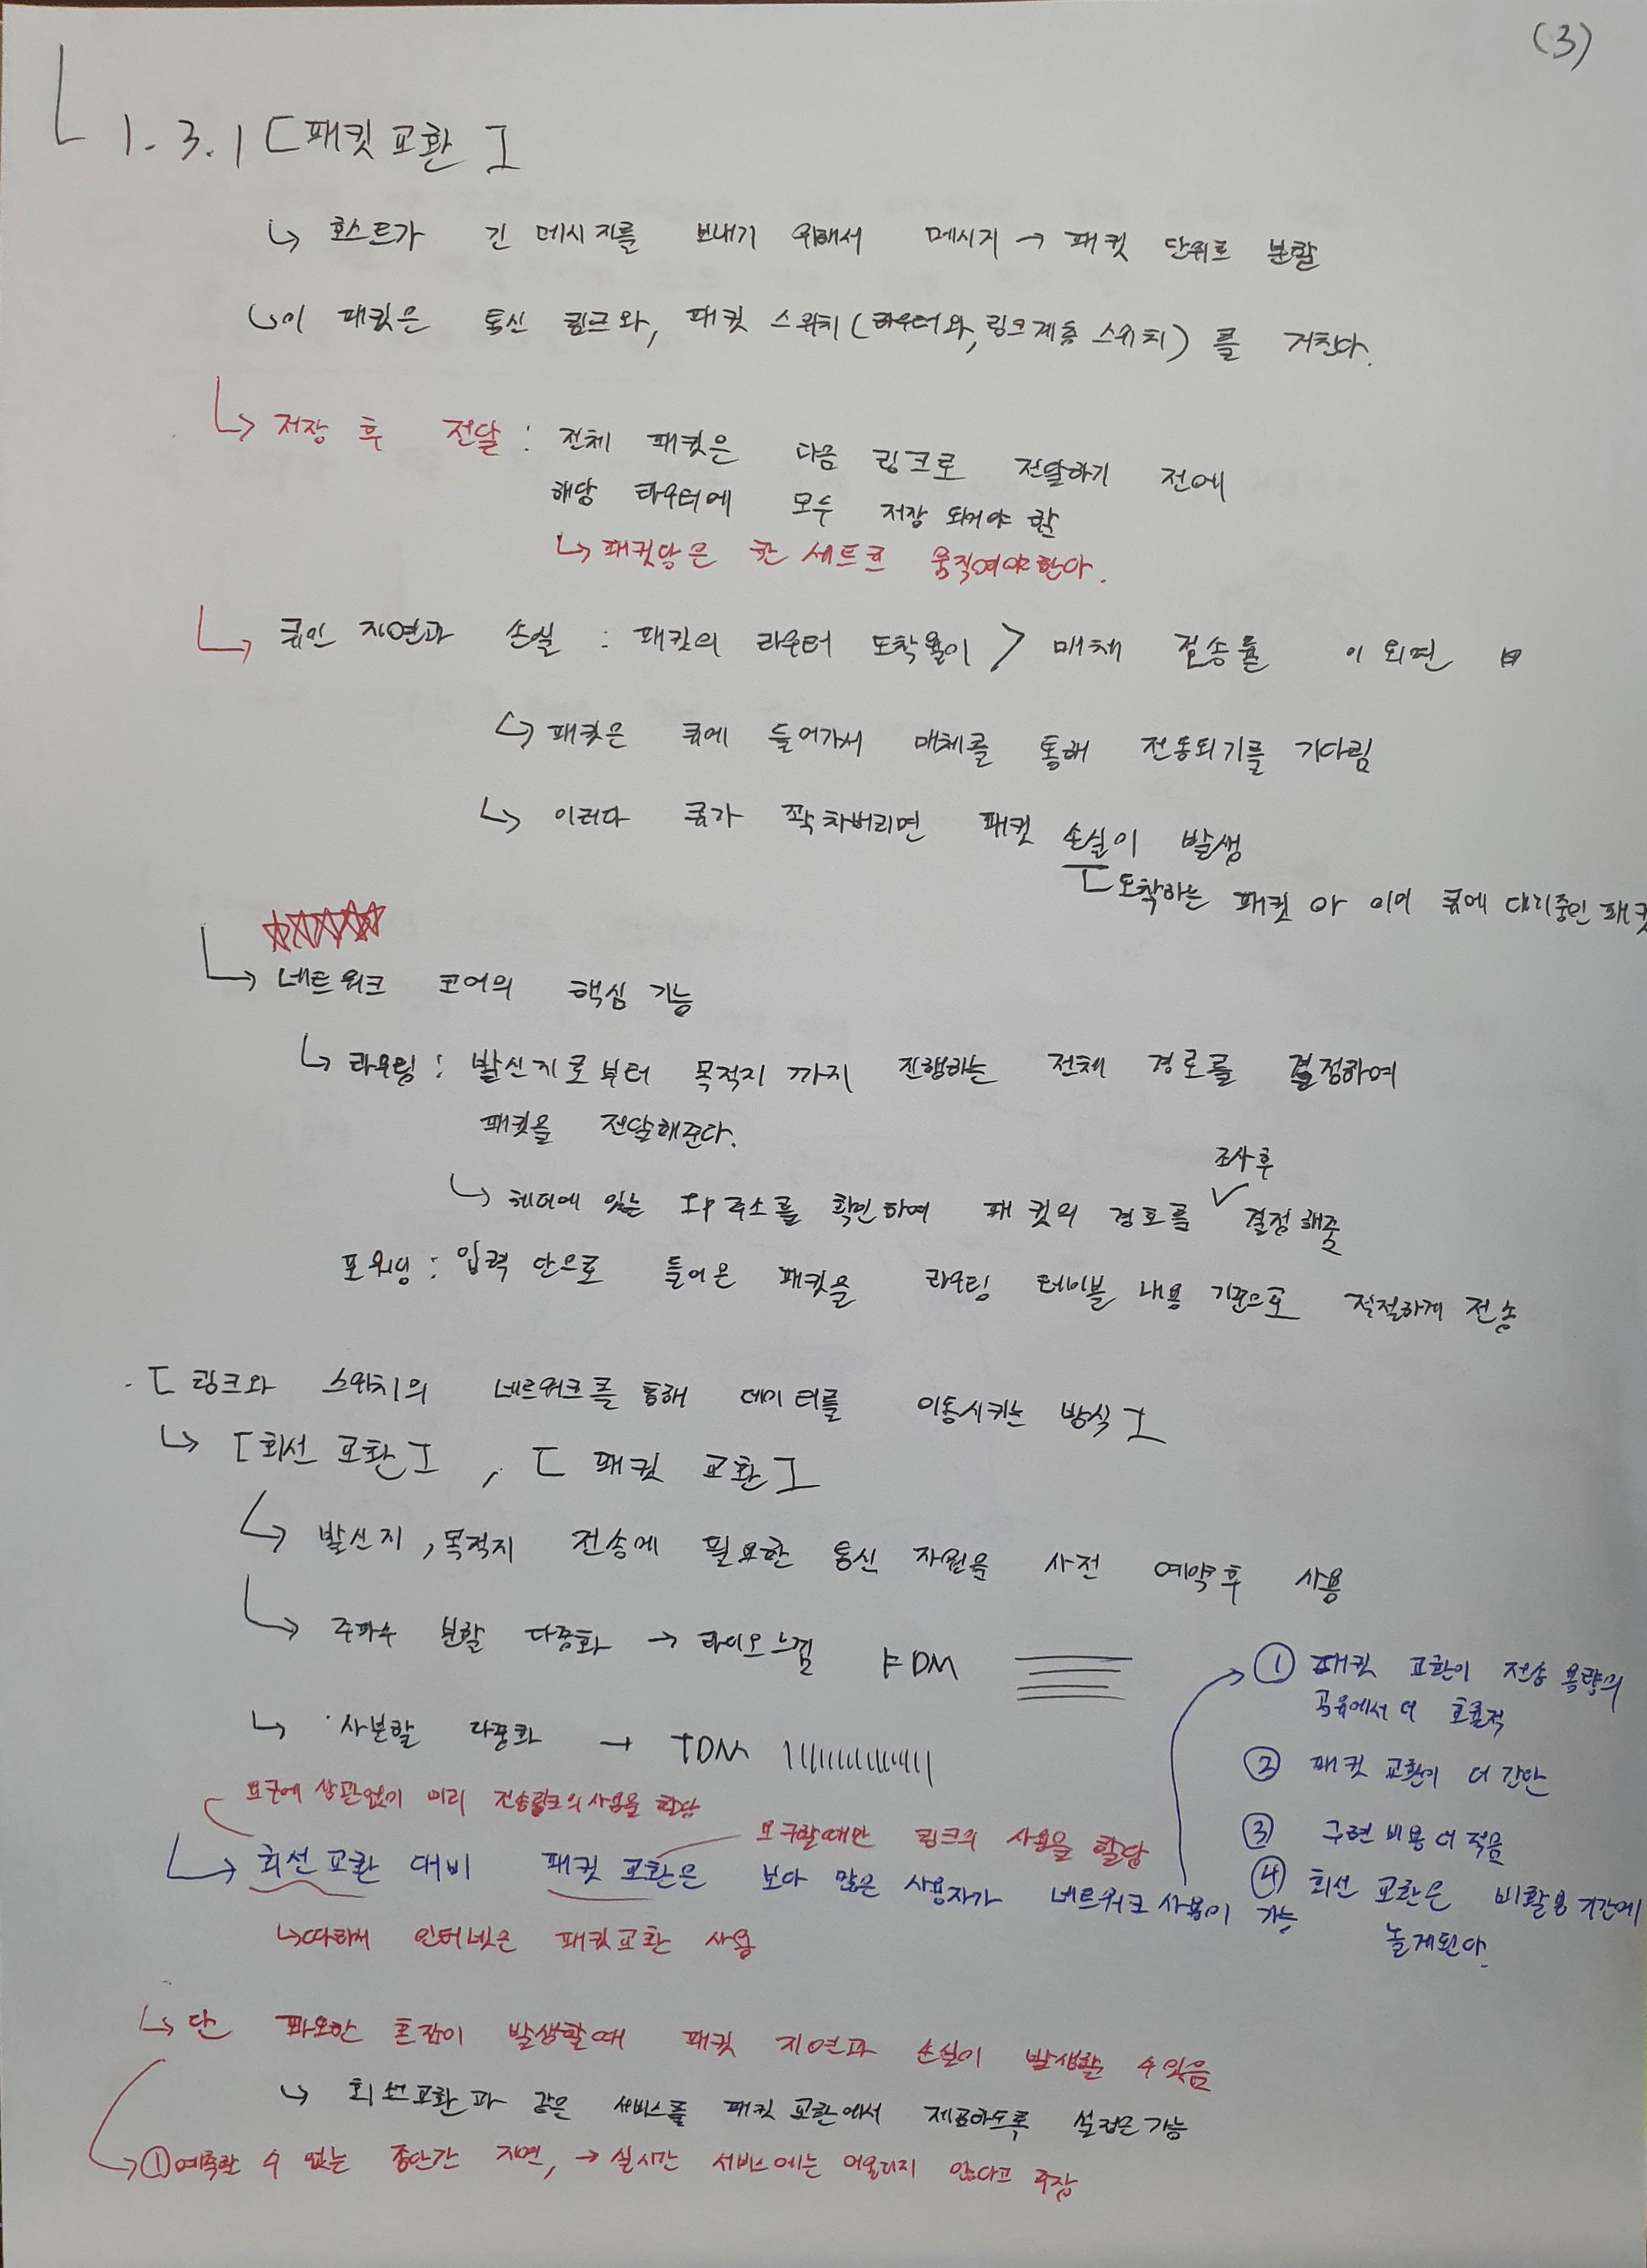 (3)
1.3.1 [패킷 교환]
↳ 호스트가 긴 메시지를 보내기 위해서 메시지 → 패킷 단위로 분할
↳ 이 패킷은 통신 링크와, 패킷 스위치(라우터와, 링크계층 스위치)를 거친다.
↳ 저장 후 전달 : 전체 패킷은 다음 링크로 전달하기 전에
해당 라우터에 모두 저장 되어야 함
↳ 패킷당은 한 세트로 움직여야한다.
↳ 큐잉 지연과 손실 : 패킷의 라우터 도착율이 > 매체 전송률 이 되면
↳ 패킷은 큐에 들어가서 매체를 통해 전송되기를 기다림
↳ 이러다 큐가 꽉 차버리면 패킷 손실이 발생
[도착하는 패킷 or 이미 큐에 대기중인 패킷
☆☆☆☆☆
↳ 네트워크 코어의 핵심 기능
↳ 라우팅 : 발신지로부터 목적지 까지 진행하는 전체 경로를 결정하여
패킷을 전달해준다.
조사 후
↳ 헤더에 있는 IP 주소를 확인하여 패킷의 경로를 ✓ 결정해줌
포워딩 : 입력 단으로 들어온 패킷을 라우팅 테이블 내용 기준으로 적절하게 전송
[링크와 스위치의 네트워크를 통해 데이터를 이동시키는 방식]
↳ [회선 교환], [패킷 교환]
↳ 발신지, 목적지 전송에 필요한 통신 자원을 사전 예약후 사용
↳ 주파수 분할 다중화 → 라디오느낌 FDM
↳ 시분할 다중화 → TDM
요구에 상관없이 미리 전송링크의 사용을 할당
요구할때만 링크의 사용을 할당
↳ 회선교환 대비 패킷 교환은 보다 많은 사용자가 네트워크 사용이 가능
↳ 따라서 인터넷은 패킷교환 사용
① 패킷 교환이 전송 용량의
공유에서 더 효율적
② 패킷 교환이 더 간단
③ 구현 비용 더 적음
④ 회선 교환은 비활용 기간에
놀게된다.
↳ 단 과도한 혼잡이 발생할때 패킷 지연과 손실이 발생할 수 있음
↳ 회선교환과 같은 서비스를 패킷 교환에서 제공하도록 설정은 가능
① 예측할 수 없는 종단간 지연, → 실시간 서비스에는 어울리지 않다고 주장